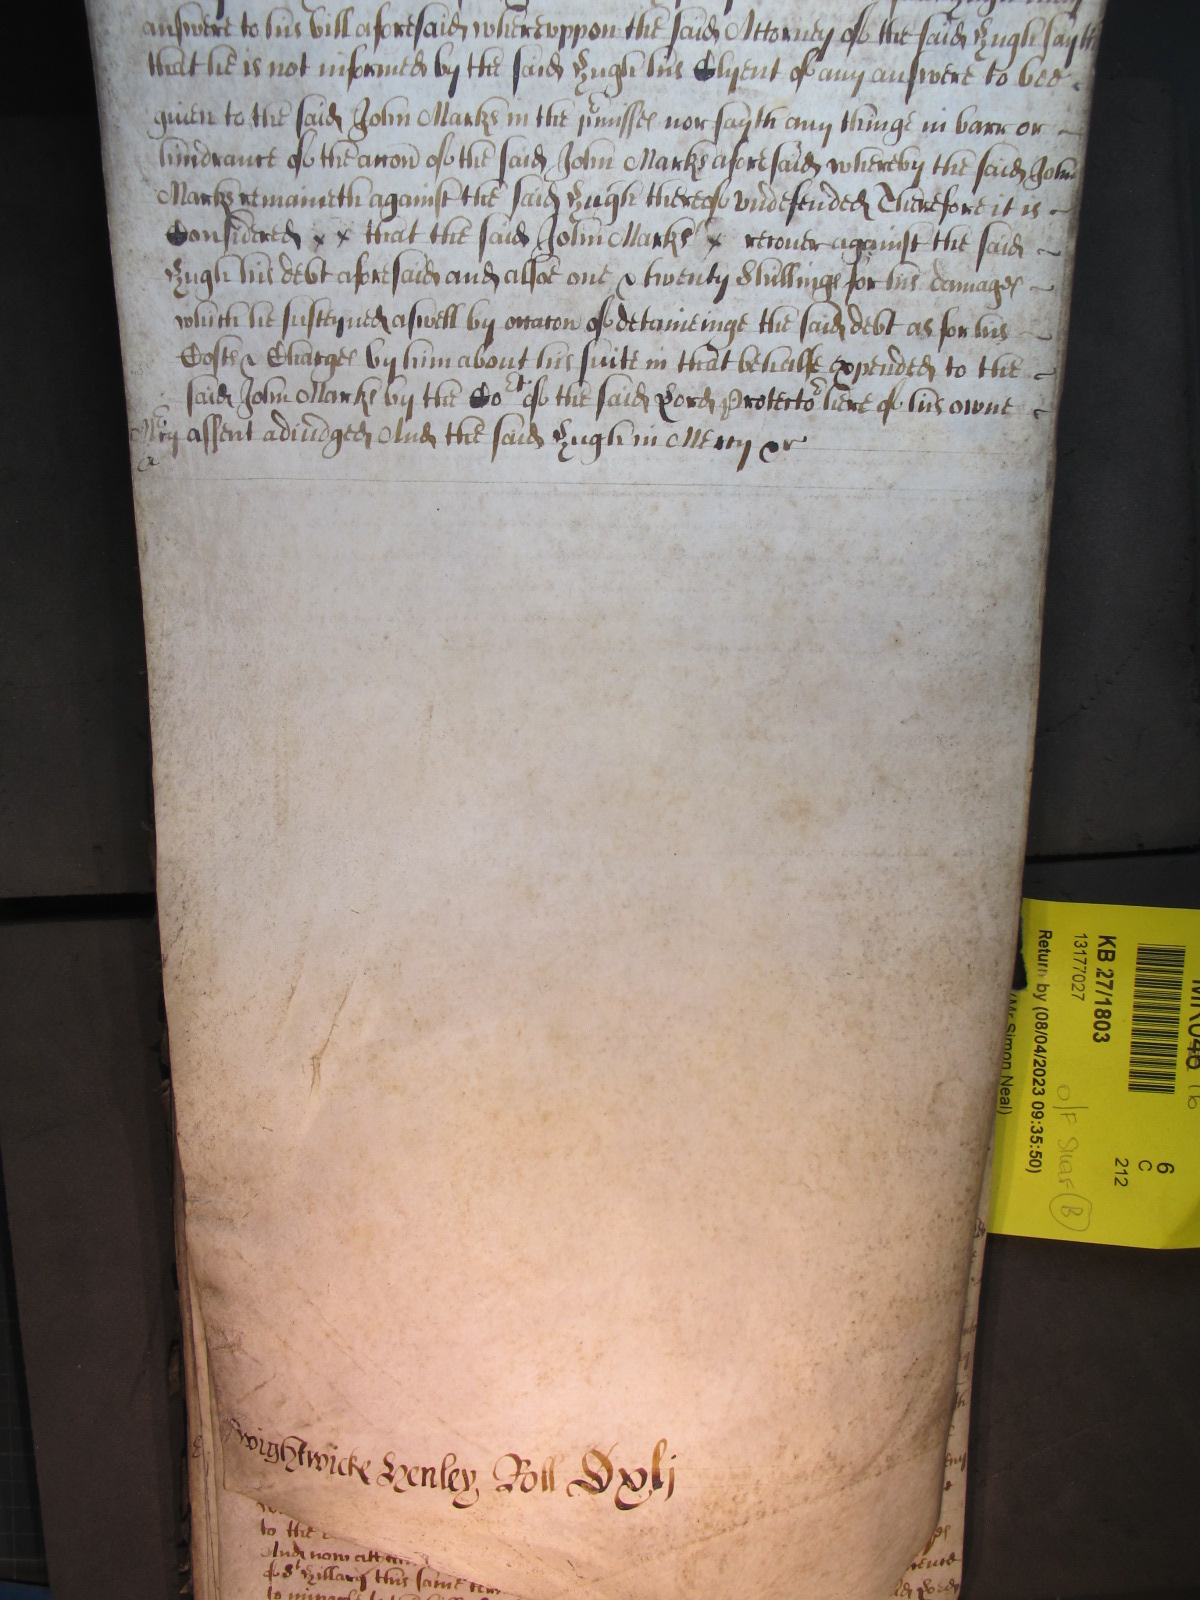 answere to his bill aforesaid whereuppon the said Attorney of the said Hugh sayth
that he is not informed by the said Hugh his Clyent of any answere to bee
giuen to the said John Marks in the pmisses nor sayth any thinge in barr or
hindrance of the accon of the said John Marks aforesaid whereby the said John
Marks remaineth against the said Hugh thereof vndefended Therefore it is
Considered x x that the said John Marks x recouer against the said
Hugh his debt aforesaid and alsoe one & twenty Shillings for his damages
which he susteyned aswell by occacon of detaineinge the said debt as for his
Costs & Charges by him about his suite in that behalfe expended to the
said John Marks by the Cort of the said Lord Protector here of his owne
assent adiudged And the said Hugh in Mercy &c
Wightwicke Henley Roll Dxlj
to the
And now att
of St Hillary this same
KB 27/1803
13177027
Return by (08/04/2023 09:35:50)
(Mr Simon Neal)
6
C
212
O/F Shelf B